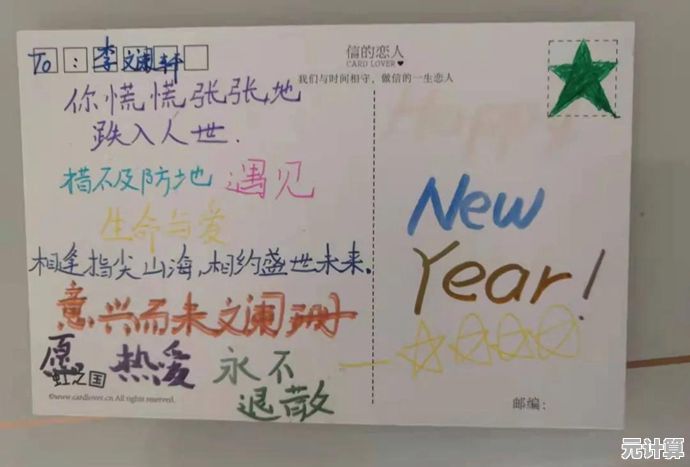 To:李文澜轩
你慌慌张张地
跌入人世.
措不及防地 遇见
生命与爱
相逢指尖山海,相约盛世未来.
意兴而未文阑珊
愿 热爱 永不
虹之国 退散
©www.cardlover.cn All rights reserved.
信的恋人
CARD LOVER
我们与时间相守,做信的一生恋人
Happy
New
Year!
邮编:
元计算